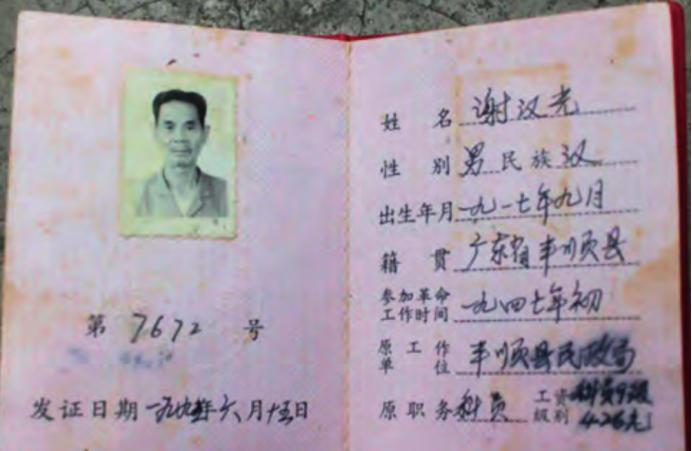 第 7672 号
发证日期 一九九 年六月十五日
姓名 谢汉光
性别 男 民族 汉
出生年月 一九一七年九月
籍贯 广东省丰顺县
参加革命工作时间 一九四七年初
原工作单位 丰顺县民政局
原职务 科员 工资级别 科员9级 426元